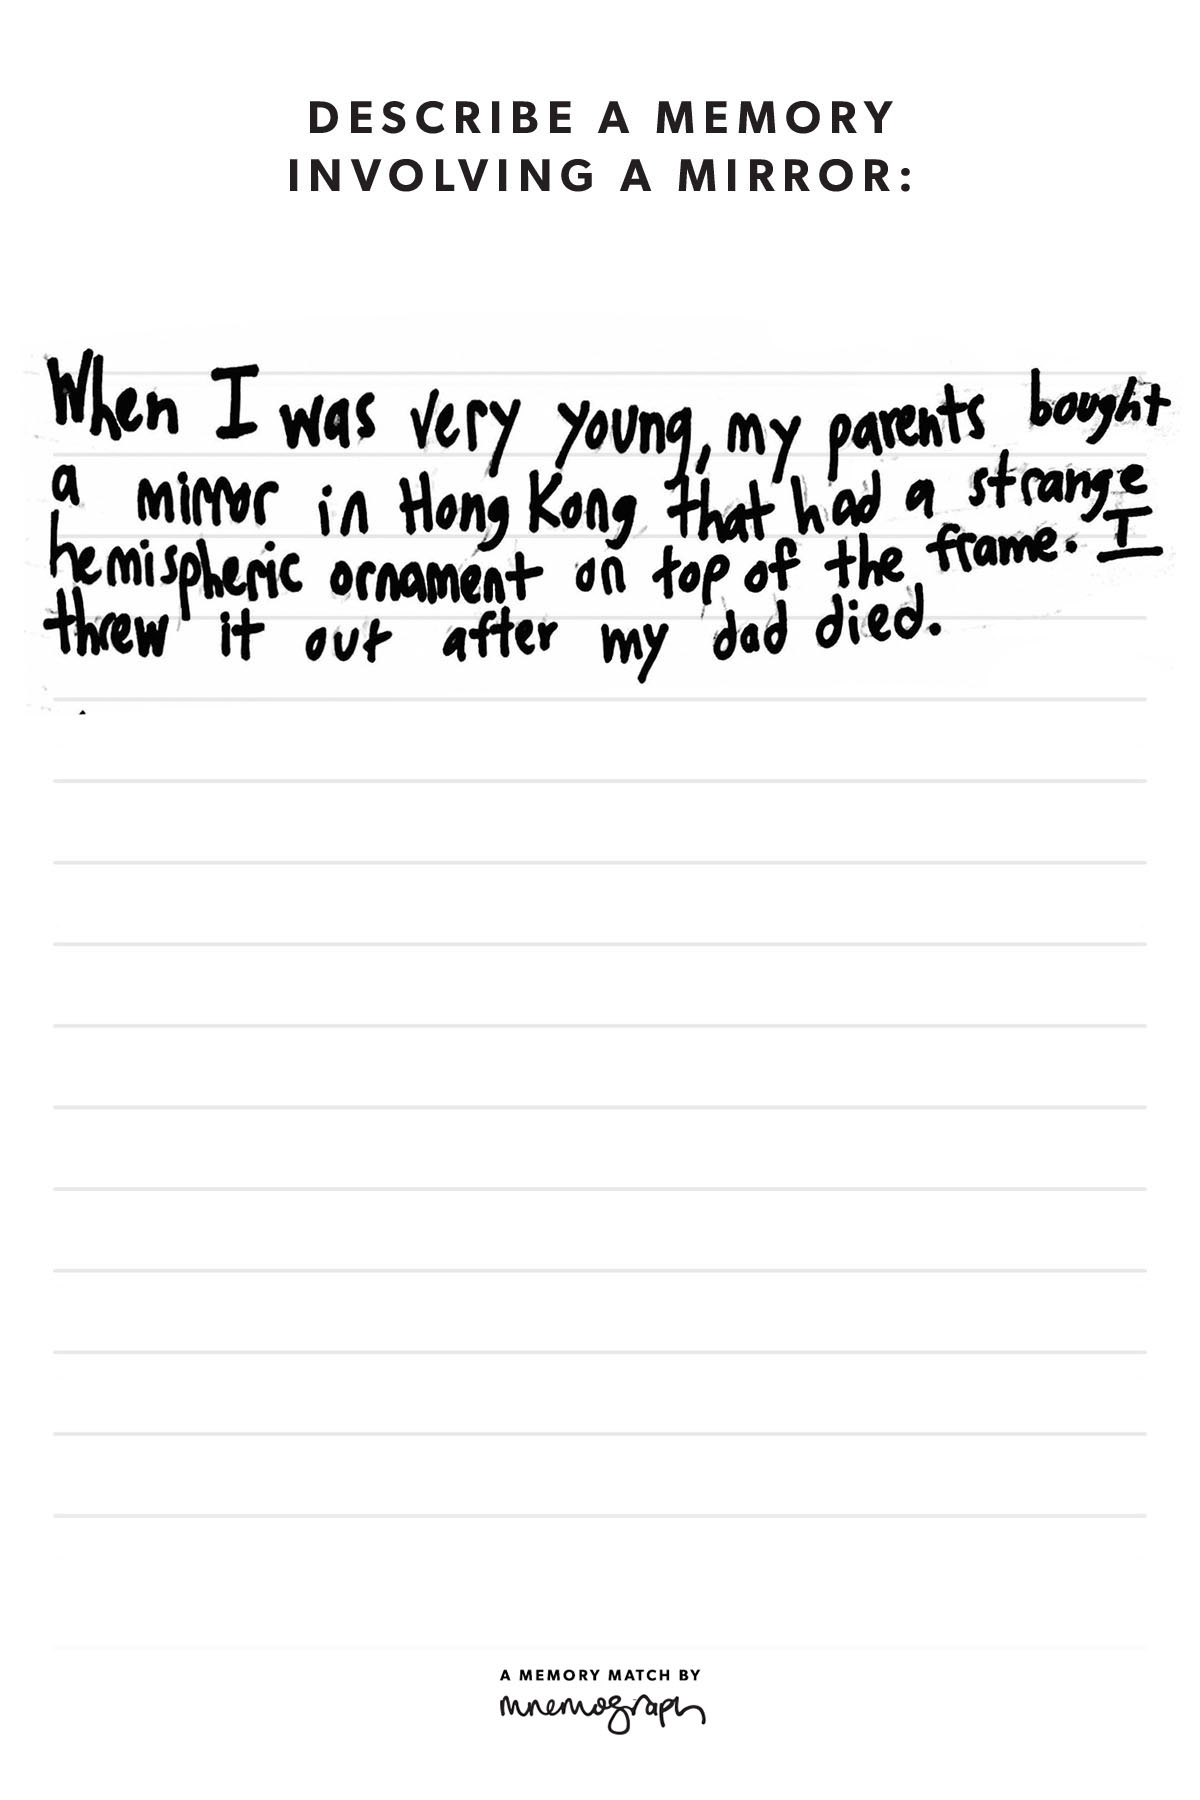 DESCRIBE A MEMORY
INVOLVING A MIRROR:
When I was very young, my parents bought
a mirror in Hong Kong that had a strange
hemispheric ornament on top of the frame. I
threw it out after my dad died.
A MEMORY MATCH BY
mnemograph